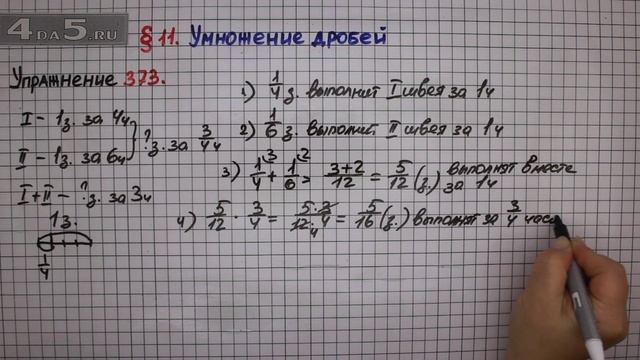 4DA5.RU
§ 11. Умножение дробей
Упражнение 373.
I – 1з. за 4ч
II – 1з. за 6ч
?з. за 3/4 ч
I+II – ?з. за 3ч
1з.
1/4
1) 1/4 з. выполнит I швея за 1ч
2) 1/6 з. выполнит II швея за 1ч
3) 1/4 + 1/6 = 3+2/12 = 5/12 (з.) выполнят вместе за 1ч
4) 5/12 · 3/4 = 5·3/12·4 = 5/16 (з.) выполнят за 3/4 часа